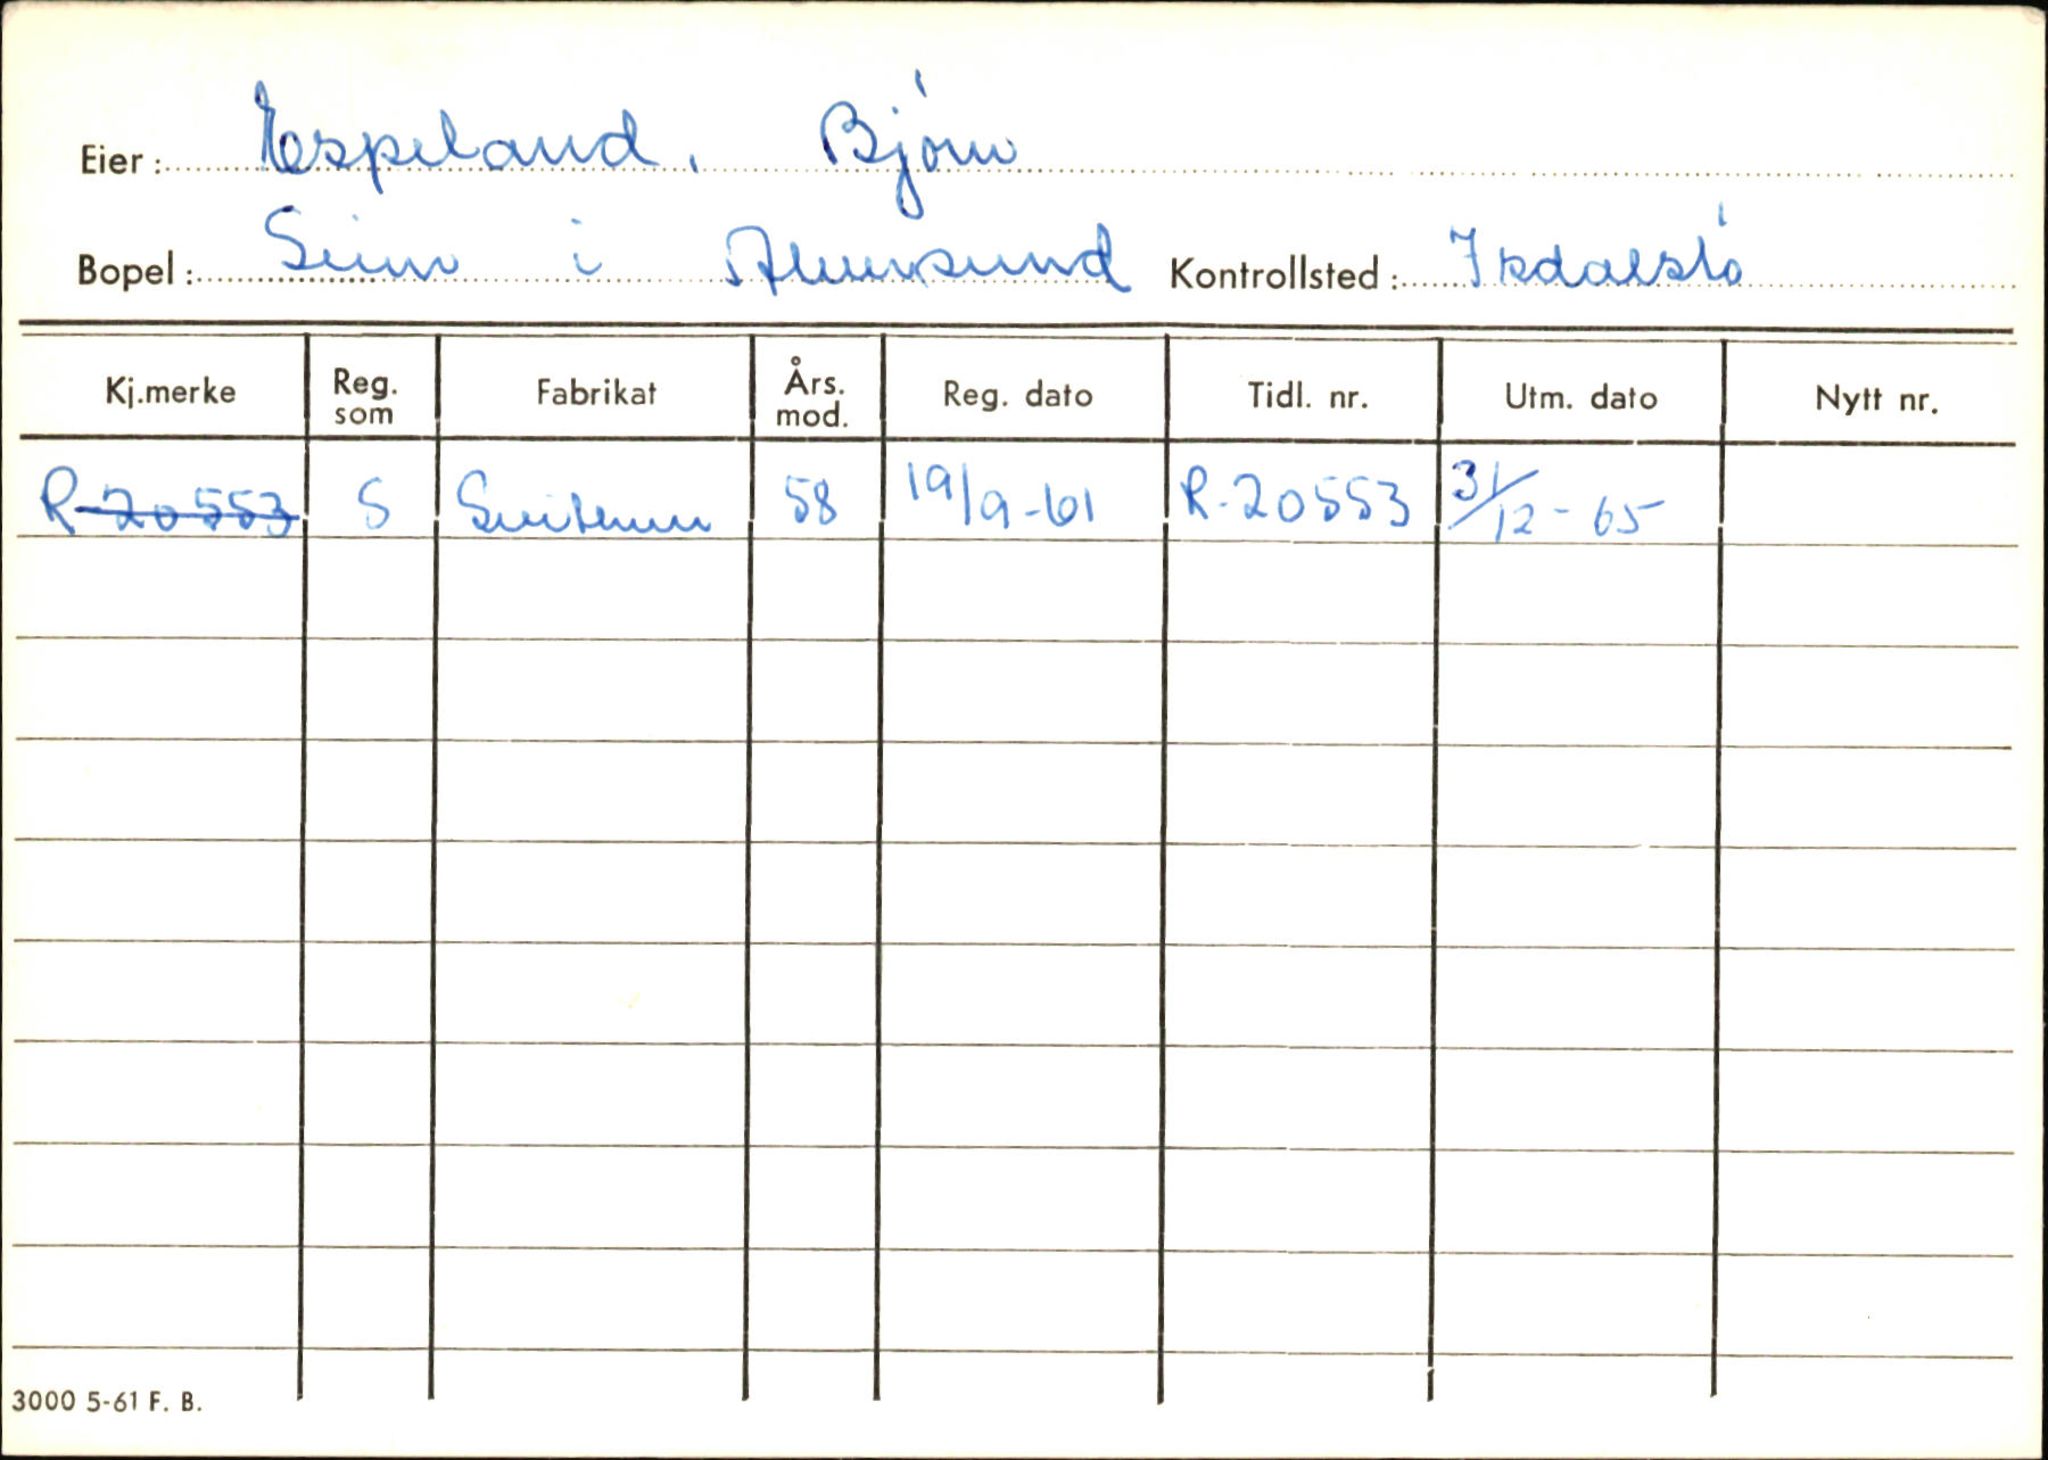 Eier: Espeland, Bjørn
Bopel: Seim i Alversund Kontrollsted: Isdalstø
Kj.merke Reg. som Fabrikat Års. mod. Reg. dato Tidl. nr. Utm. dato Nytt nr.
R-20553 S 58 19/9-61 R-20553 31/12-65
3000 5-61 F. B.